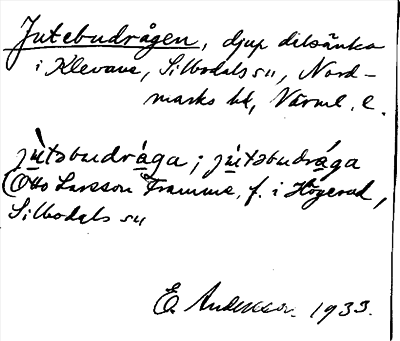 Jutebudrågen, djup dalsänka
i Klevane, Silbodals sn, Nord-
marks hd, Värml. l.
jùtəbudrága; jùtəbudrága
(Otto Larsson Framme, f. i Högerud,
Silbodals sn
E. Andersson. 1933.